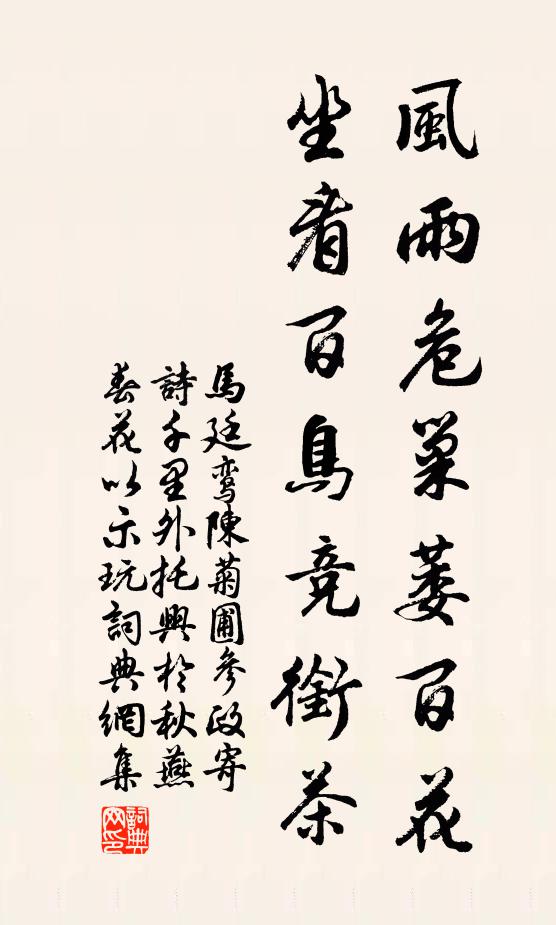 風雨危巢蒌百花
坐看百鳥竞銜茶
馬廷鸾陳菊圃参政寄
詩千里外托興於秋燕
春花以示玩詞典網集
詞典
网印